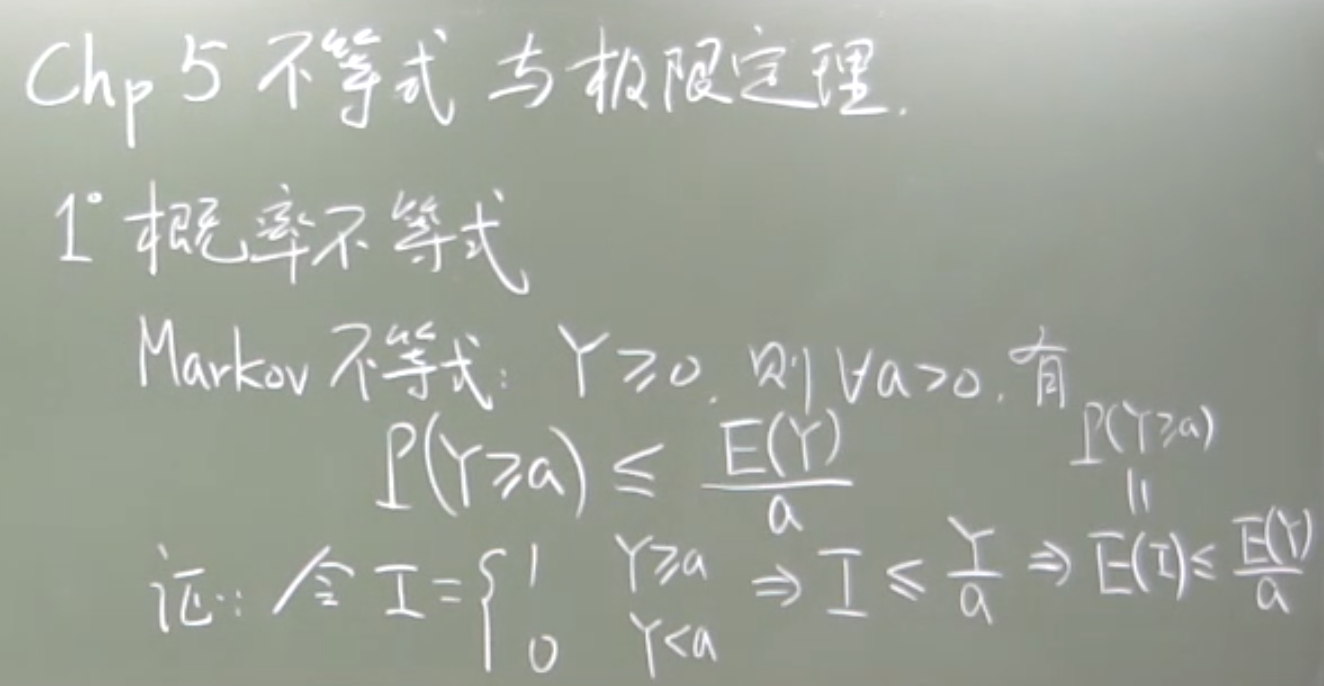 Chp 5 不等式与极限定理.
1° 概率不等式
Markov 不等式: Y ≥ 0. 则 ∀a>0. 有
P(Y≥a) ≤ E(Y)/a
P(Y≥a)
||
证: 令 I = { 1 Y≥a ⇒ I ≤ Y/a ⇒ E(I) ≤ E(Y)/a
0 Y<a